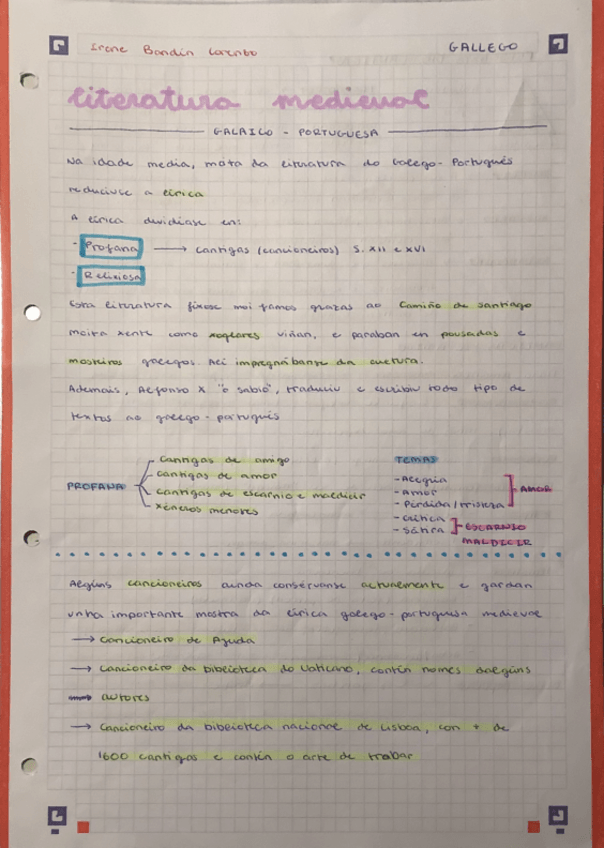 Irene Bandín Lorenzo
GALLEGO
literatura medieval
GALAICO - PORTUGUESA
Na idade media, moita da literatura do Galego-Portugués
reducíuse a lírica
A lírica dividíase en:
- Profana → cantigas (cancioneiros) S. XII e XVI
- Relixiosa
Esta literatura fíxose moi famos grazas ao Camiño de santiago
moita xente como xoglares viñan, e paraban en pousadas e
mosteiros galegos. Alí impregnábanse da cultura.
Ademais, Alfonso X "o sabio", traduciu e escribiu todo tipo de
textos ao galego-portugués
PROFANA
cantigas de amigo
cantigas de amor
cantigas de escarnio e maldicir
xéneros menores
TEMAS
- Alegria
- Amor
- Perdida / tristeza
AMOR
- Crítica
- Sátira
ESCARNIO
MALDECIR
Algúns cancioneiros aínda consérvanse actualmente e gardan
unha importante mostra da lírica galego-portuguesa medieval
→ Cancioneiro de Ajuda
→ Cancioneiro da biblioteca do Vaticano, contín nomes dalgúns
autores
→ Cancioneiro da biblioteca nacional de Lisboa, con + de
1600 cantigas e contín o arte de trobar